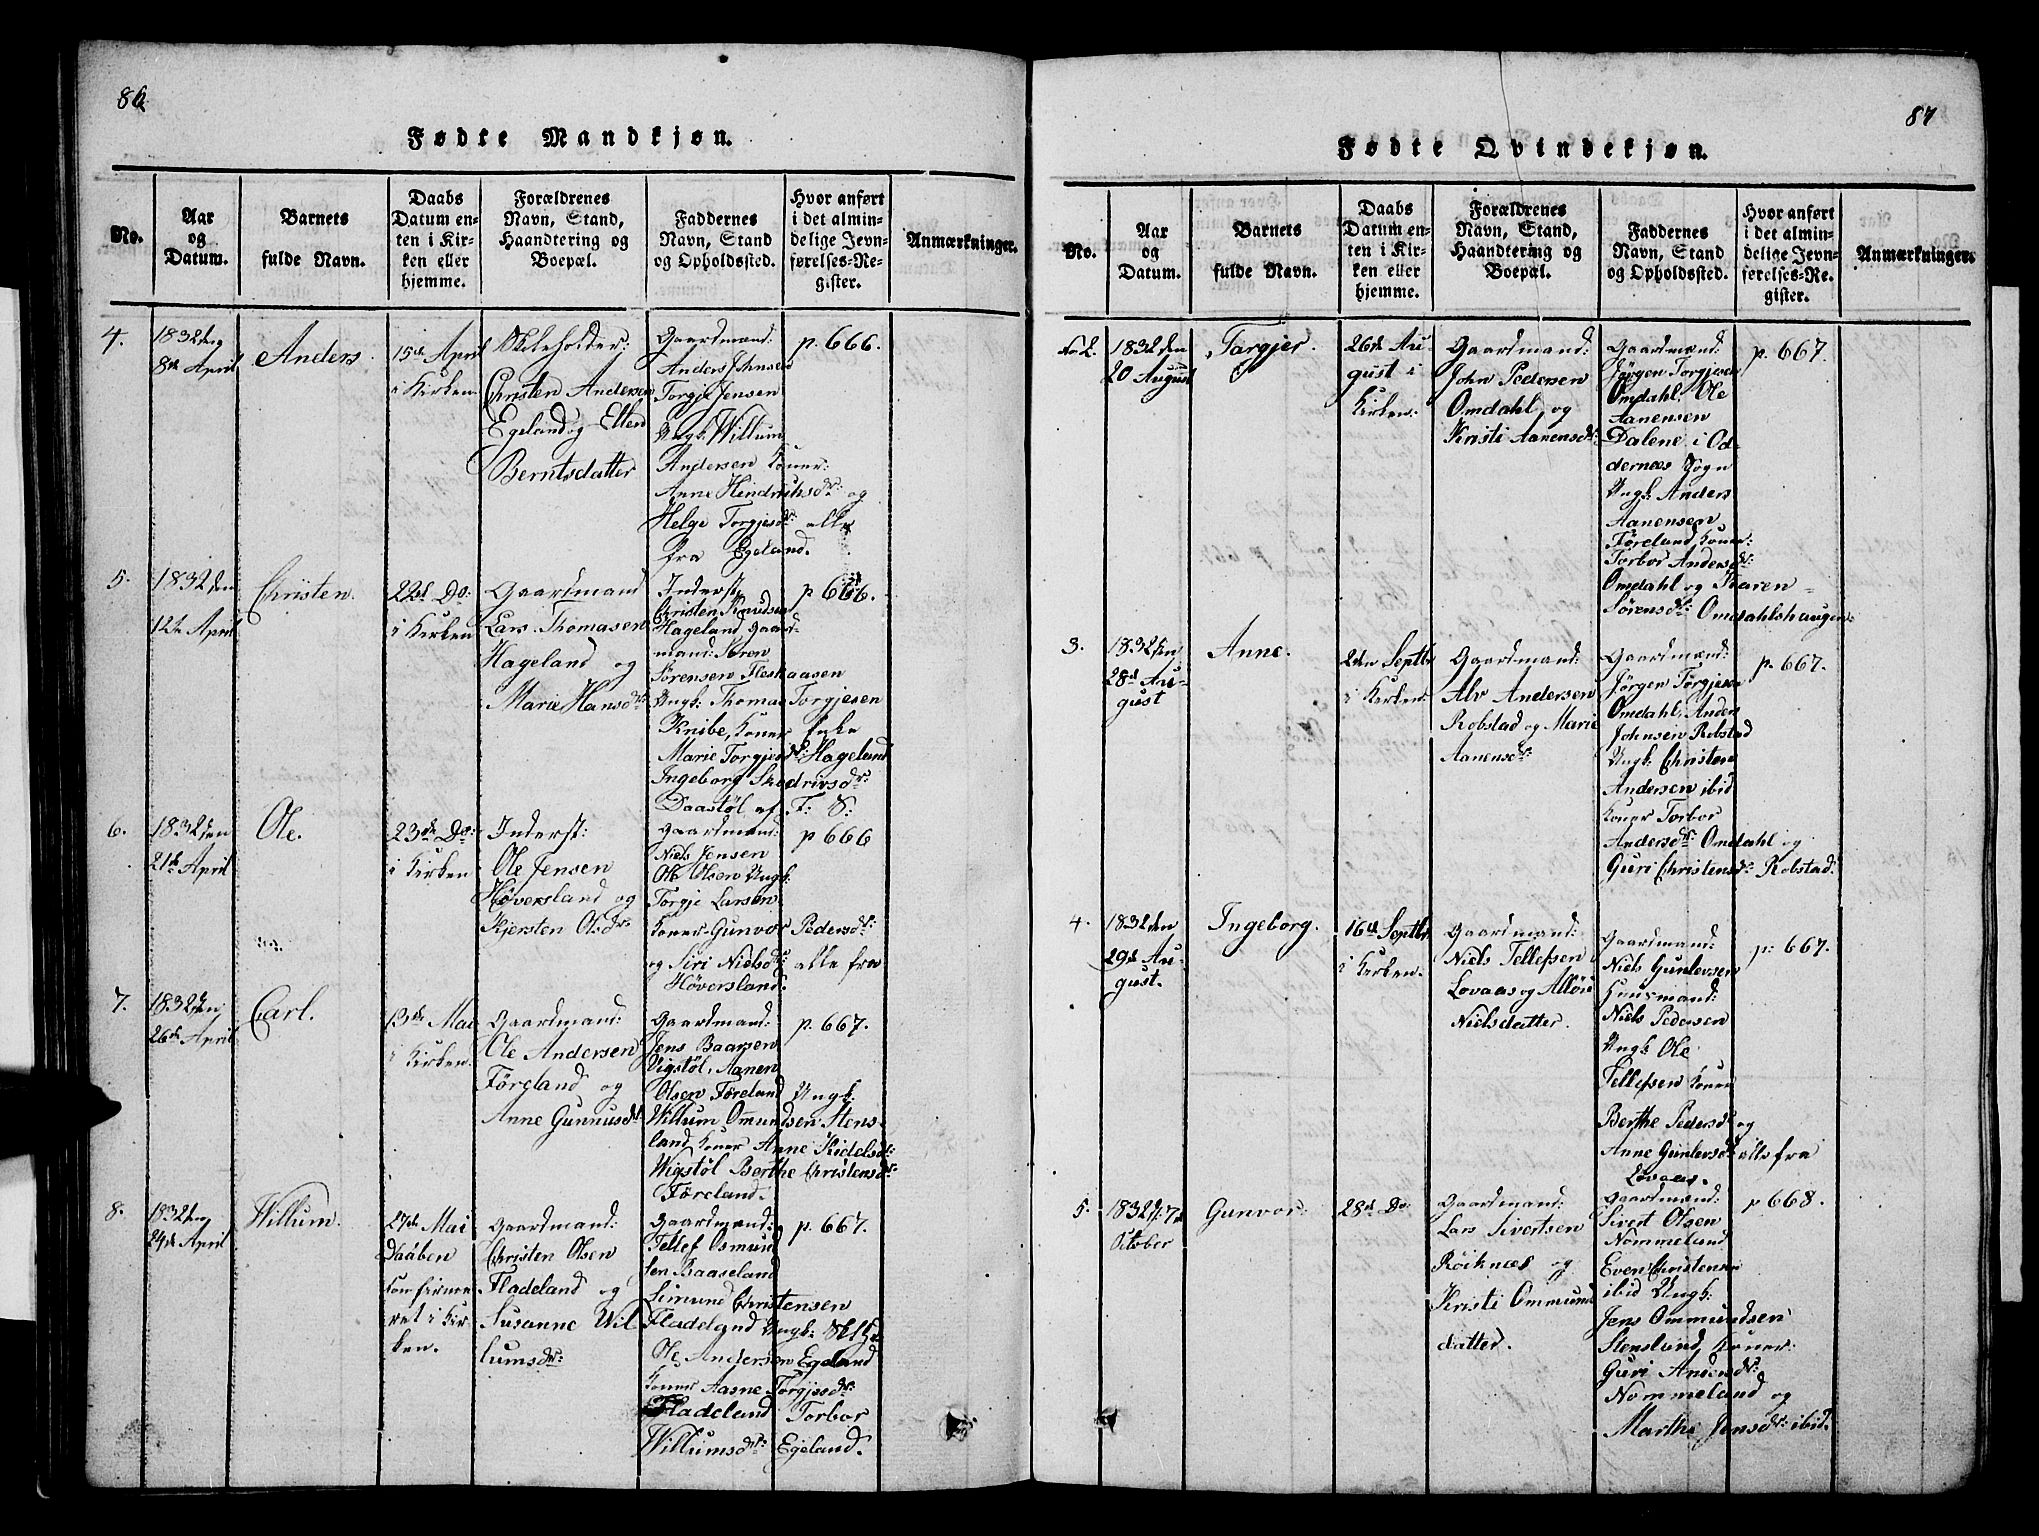 86
Fødte Mandkjøn.
No.
Aar og Datum.
Barnets fulde Navn.
Daabs Datum enten i Kirken eller hjemme.
Forældrenes Navn, Stand, Haandtering og Boepæl.
Faddernes Navn, Stand og Opholdssted.
Hvor anført i det almindelige Jevnførelses-Register.
Anmærkninger.
4.
1832 den
8de April
Anders.
15de April
i Kirken
Christen Andersen
Egeland og Ellen
Berntsdatter
Gaardmænd:
Anders Johnsen
Torgje Jensen
Ungk: Willum
Andersen Koner:
Anne Hendrichsdr: og
Helge Torgjesdr: alle
fra Egeland.
p. 666.
5.
1832 den
12te April
Christen.
22de Do:
i Kirken
Gaardmand
Lars Thomasen
Hageland og
Marie Hansdr:
Inderst,
Christen Knudsen
Hageland Gaard-
mænd: Søren
Sørensen Fleskaasen
Ungk: Thomas Torgjesen
Knibe, Koner
Marie Torgjesdr: Hageland
Ingeborg
Daastøl af F: S:
p. 666.
6.
1832 den
21de April
Ole.
23de Do:
i Kirken
Inderst:
Ole Jensen
Høversland og
Kjersten Olsdr:
Gaardmænd:
Niels Jensen
Ole Olsen Ungk:
Torgje Larsen
Koner Gunvor Pedersdr:
og Siri Nielsdr: alle fra
Høversland.
p 666
7.
1832 den
26de April
Carl.
13de Mai
i Kirken.
Gaardmand:
Ole Andersen
Føreland og
Anne Gunnusdr:
Gaardmænd:
Jens Baarsen
Vigstøl, Aanen
Olsen Føreland Ungk:
Willum Omundsen Stens-
land, Koner Anne Kidelsdr:
Wigstøl Berthe Christensdr:
Føreland.
p. 667.
8.
1832 den
24de April
Willum.
27de Mai
Daaben
confirme-
ret i Kir-
ken.
Gaardmand:
Christen Olsen
Fladeland og
Susanne Wil-
lumsdr:
Gaardmænd:
Tellef Osmund-
sen Baaseland
Simund Christensen
Fladeland Ungk:
Ole Andersen Egeland
Koner Aasne Torgjesdr:
Fladeland Torbor
Willumsdr: Egeland.
p. 667.
87
Fødte Qvindekjøn.
No.
Aar og Datum.
Barnets fulde Navn.
Daabs Datum enten i Kirken eller hjemme.
Forældrenes Navn, Stand, Haandtering og Boepæl.
Faddernes Navn, Stand og Opholdssted.
Hvor anført i det almindelige Jevnførelses-Register.
Anmærkninger.
No 2.
1832 den
20 August
Targjer.
26de Au-
gust i
Kirken:
Gaardmand:
John Pedersen
Omdahl og
Kristi Aanensdr:
Gaardmænd:
Jørgen Torgjesen
Omdahl, Ole
Aanensen
Dalene i Od-
dernæs Sogn
Ungk: Anders
Aanensen
Føreland, Koner:
Torbor Andersdr:
Omdahl og Karen
Sørensdr: Omdahlshaugen.
p. 667.
3.
1832 den
28de Au-
gust
Anne.
2den Septbr
i Kirken
Gaardmand:
Alv Andersen
Robstad og Marie
Aanensdr:
Gaardmænd:
Jørgen Torgjesen
Omdahl, Anders
Johnsen Robstad
Ungk: Christen
Andersen ibid
Koner Torbor
Andersdr: Omdahl og
Guri Christensdr: Robstad.
p. 667.
4.
1832 den
29de Au-
gust.
Ingeborg.
16de Septbr
i Kirken.
Gaardmand:
Niels Tellefsen
Lovaas og
Nielsdatter.
Gaardmand:
Niels Gunlevsen
Huusmand:
Niels Pedersen
Ungk: Ole
Tellefsen Koner
Berthe Pedersdr: og
Anne Gunlevsdr: alle fra
Lovaas.
p. 667.
5.
1832 d: 7de
October
Gunvor.
28de Do
Gaardmand:
Lars Sivertsen
Røiknæs og
Kristi Ommund
datter.
Gaardmænd:
Sivert Olsen
Nommeland
Even Christensen
ibid Ungk:
Jens Ommundsen
Stensland, Koner:
Guri Andersdr:
Nommeland og
Marthe Jensdr: ibid.
p 668.